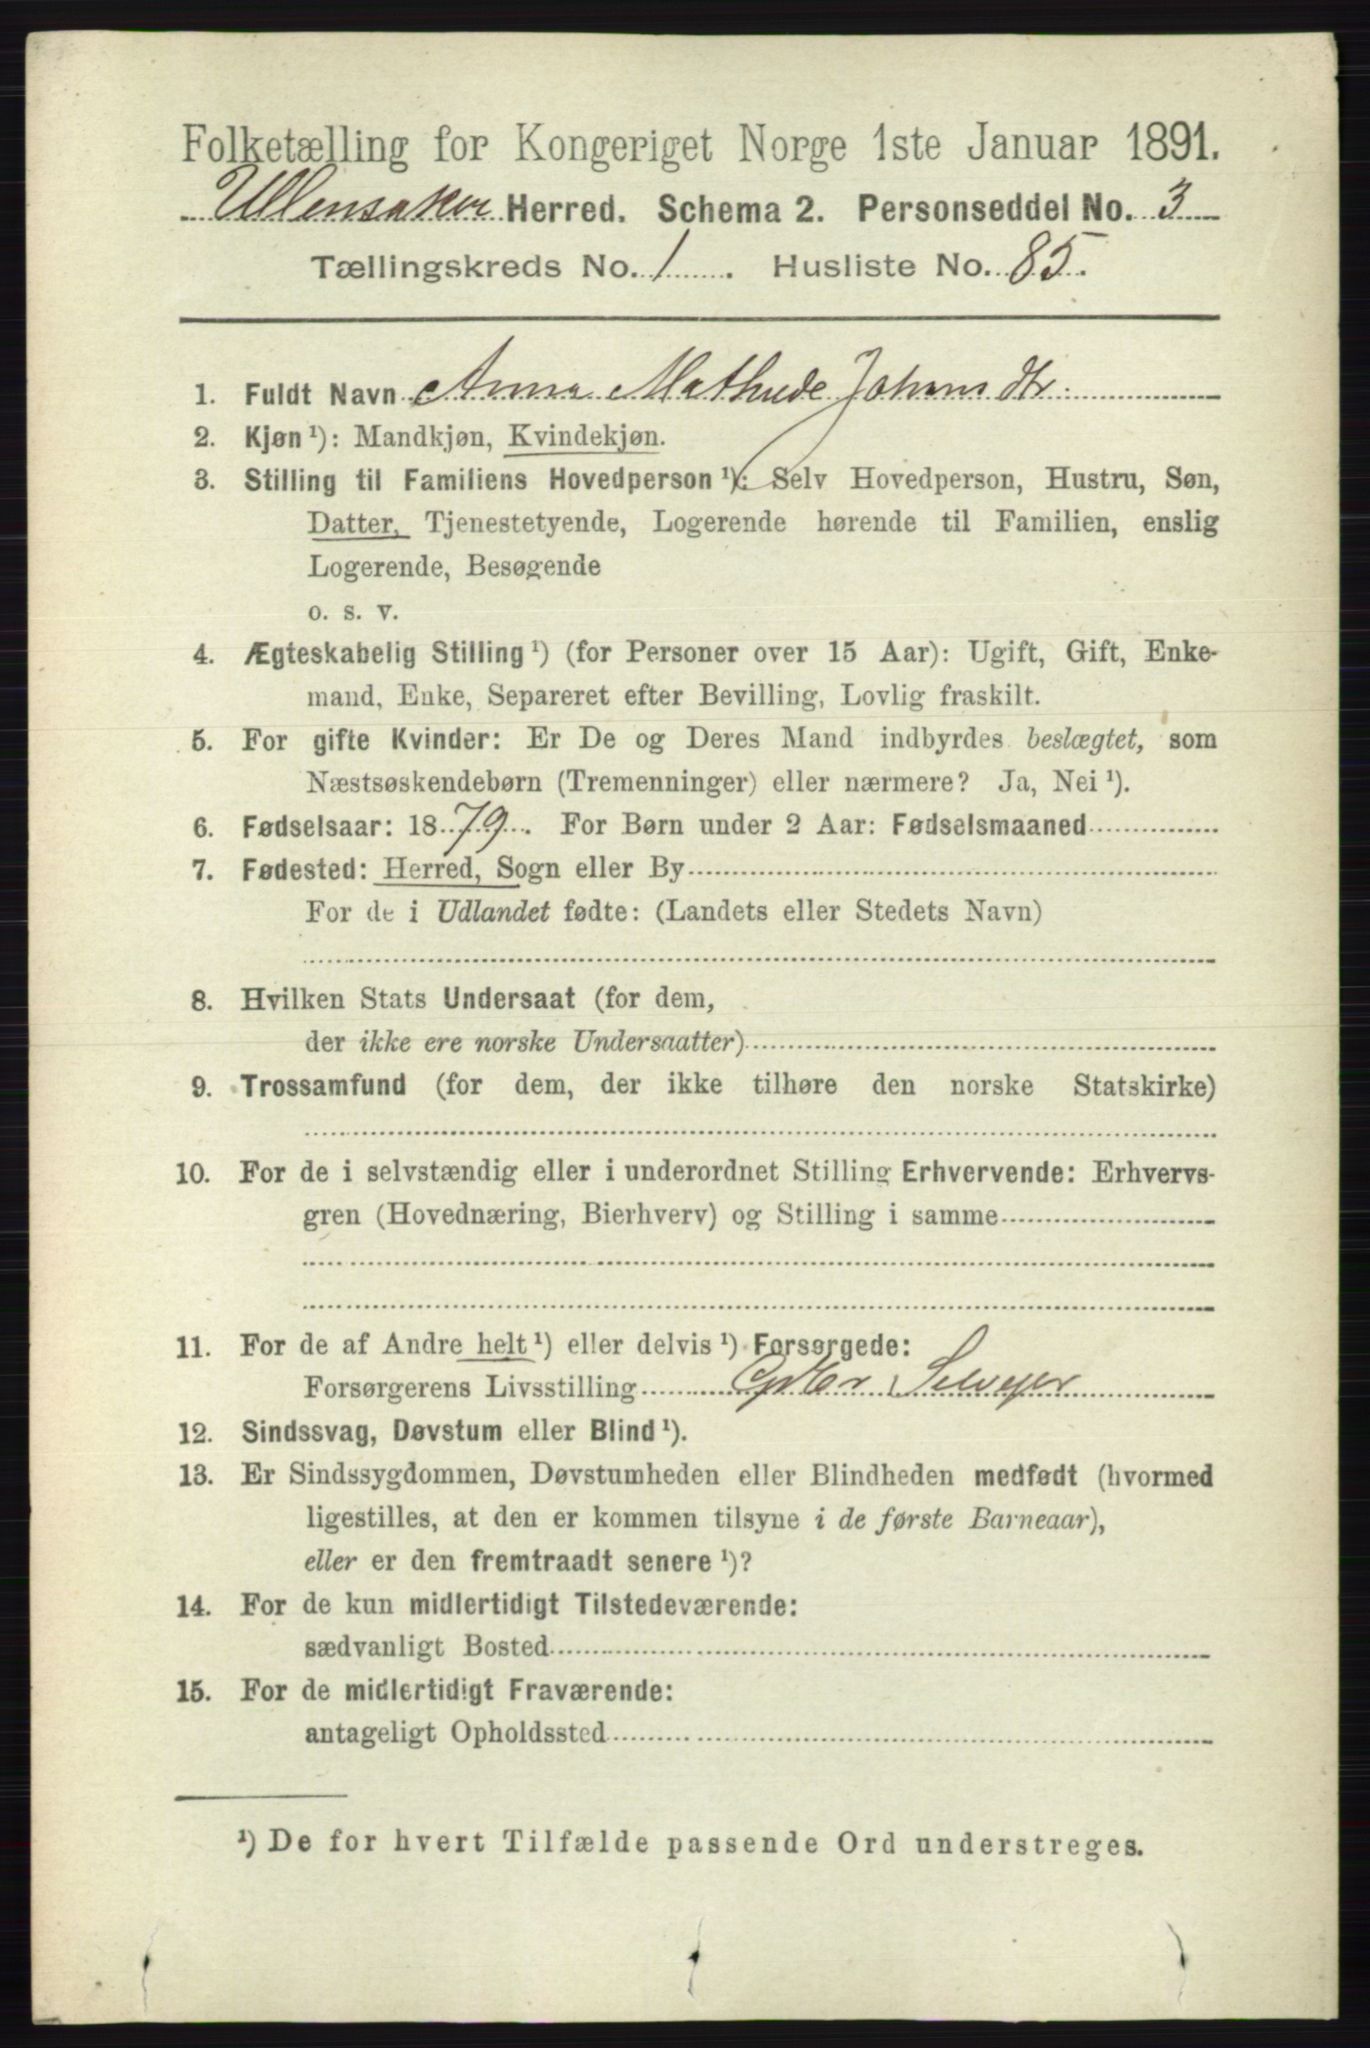 Folketælling for Kongeriget Norge 1ste Januar 1891.
Ullensaker Herred. Schema 2. Personseddel No. 3
Tællingskreds No. 1. Husliste No. 85.
1. Fuldt Navn Anna Mathilde Johansdtr.
2. Kjøn ¹): Mandkjøn, Kvindekjøn.
3. Stilling til Familiens Hovedperson ¹): Selv Hovedperson, Hustru, Søn,
Datter, Tjenestetyende, Logerende hørende til Familien, enslig
Logerende, Besøgende
o. s. v.
4. Ægteskabelig Stilling ¹) (for Personer over 15 Aar): Ugift, Gift, Enke-
mand, Enke, Separeret efter Bevilling, Lovlig fraskilt.
5. For gifte Kvinder: Er De og Deres Mand indbyrdes beslægtet, som
Næstsøskendebørn (Tremenninger) eller nærmere? Ja, Nei ¹).
6. Fødselsaar: 1879. For Børn under 2 Aar: Fødselsmaaned
7. Fødested: Herred, Sogn eller By
For de i Udlandet fødte: (Landets eller Stedets Navn)
8. Hvilken Stats Undersaat (for dem,
der ikke ere norske Undersaatter)
9. Trossamfund (for dem, der ikke tilhøre den norske Statskirke)
10. For de i selvstændig eller i underordnet Stilling Erhvervende: Erhvervs-
gren (Hovednæring, Bierhverv) og Stilling i samme
11. For de af Andre helt ¹) eller delvis ¹) Forsørgede:
Forsørgerens Livsstilling Selveier
12. Sindssvag, Døvstum eller Blind ¹).
13. Er Sindssygdommen, Døvstumheden eller Blindheden medfødt (hvormed
ligestilles, at den er kommen tilsyne i de første Barneaar),
eller er den fremtraadt senere ¹)?
14. For de kun midlertidigt Tilstedeværende:
sædvanligt Bosted
15. For de midlertidigt Fraværende:
antageligt Opholdssted
¹) De for hvert Tilfælde passende Ord understreges.